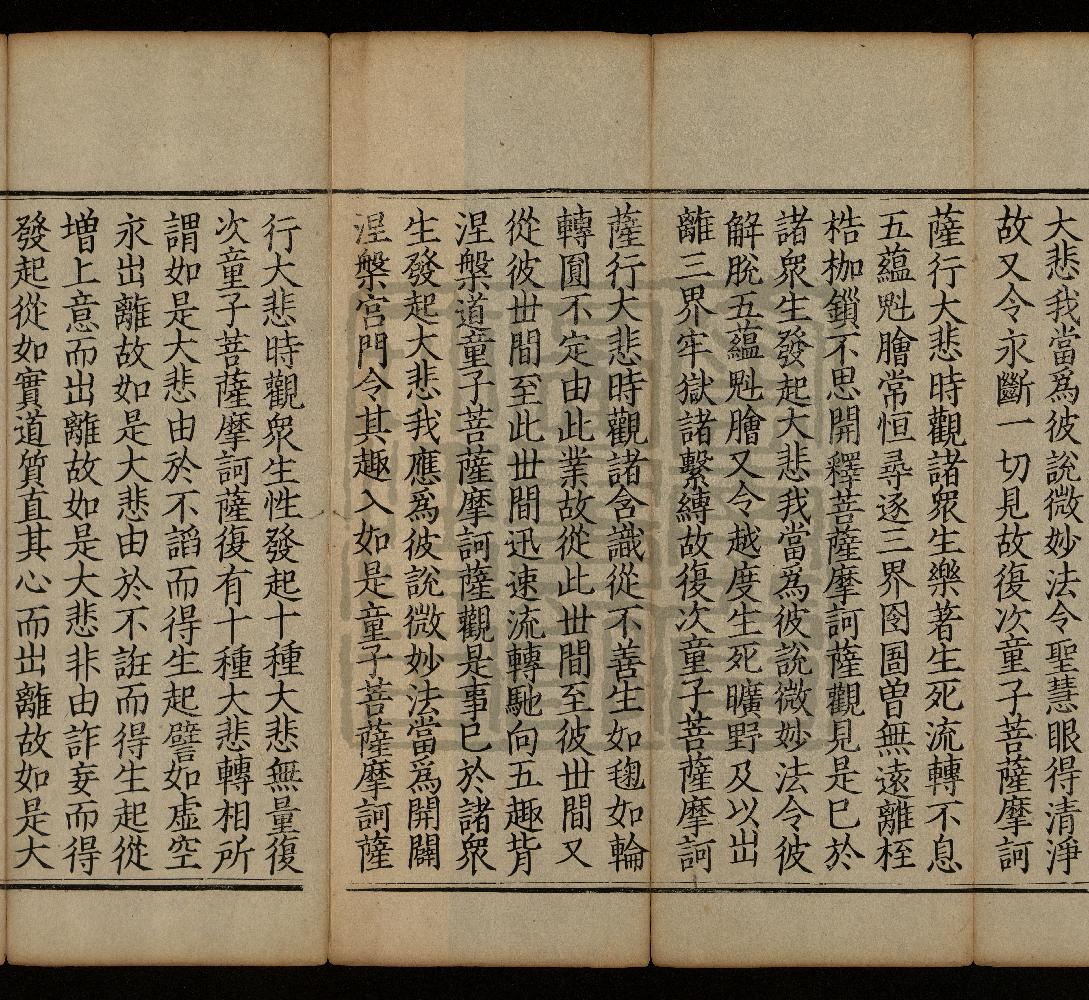 大悲我當爲彼說微妙法令聖慧眼得清淨
故又令永斷一切見故復次童子菩薩摩訶
薩行大悲時觀諸衆生樂著生死流轉不息
五蘊魁膾常恒尋逐三界囹圄曽無遠離桎
梏枷鎖不思開釋菩薩摩訶薩觀見是已於
諸衆生發起大悲我當爲彼說微妙法令彼
解脫五蘊魁膾又令越度生死曠野及以出
離三界牢獄諸繫縛故復次童子菩薩摩訶
薩行大悲時觀諸含識從不善生如毱如輪
轉圓不定由此業故從此世間至彼世間又
從彼世間至此世間迅速流轉馳向五趣背
涅槃道童子菩薩摩訶薩觀是事已於諸衆
生發起大悲我應爲彼說微妙法當爲開闢
涅槃宮門令其趣入如是童子菩薩摩訶薩
行大悲時觀衆生性發起十種大悲無量復
次童子菩薩摩訶薩復有十種大悲轉相所
謂如是大悲由於不謟而得生起譬如虛空
永出離故如是大悲由於不誑而得生起從
增上意而出離故如是大悲非由詐妄而得
發起從如實道質直其心而出離故如是大